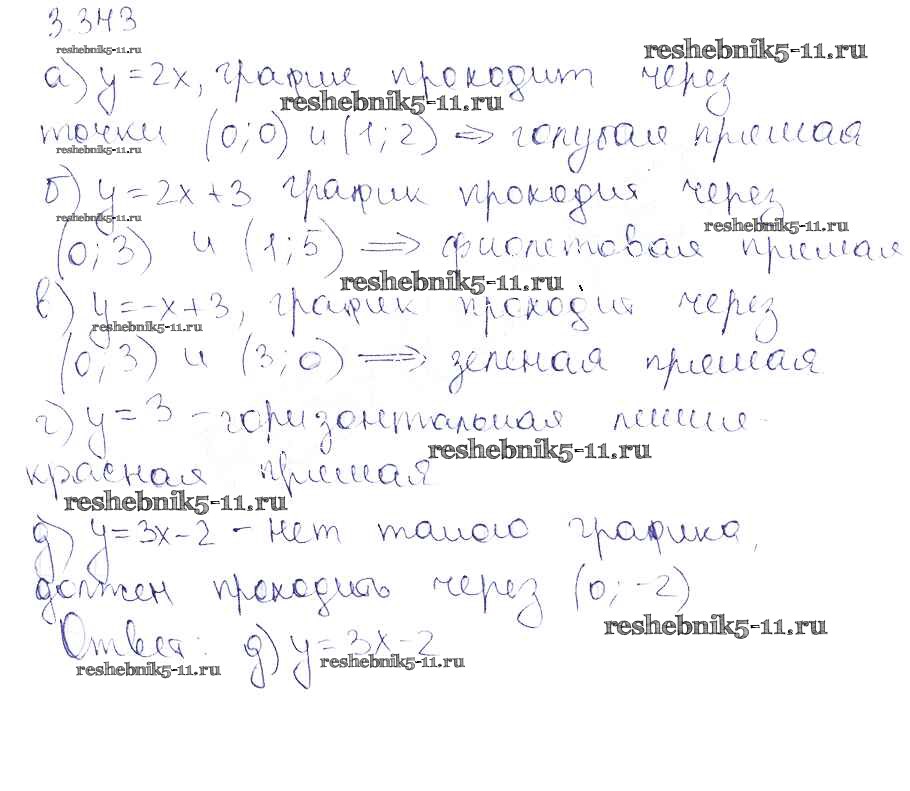 3.343
reshebnik5-11.ru
reshebnik5-11.ru
а) y = 2x, график проходит через
reshebnik5-11.ru
точки (0; 0) и (1; 2) ⇒ голубая прямая
reshebnik5-11.ru
б) y = 2x + 3 график проходит через
reshebnik5-11.ru
reshebnik5-11.ru
(0; 3) и (1; 5) ⇒ фиолетовая прямая
reshebnik5-11.ru
в) y = -x + 3, график проходит через
reshebnik5-11.ru
(0; 3) и (3; 0) ⇒ зеленая прямая
г) y = 3 - горизонтальная линия -
reshebnik5-11.ru
красная прямая
reshebnik5-11.ru
д) y = 3x - 2 - нет такого графика,
должен проходить через (0; -2)
reshebnik5-11.ru
Ответ: д) y = 3x - 2
reshebnik5-11.ru
reshebnik5-11.ru